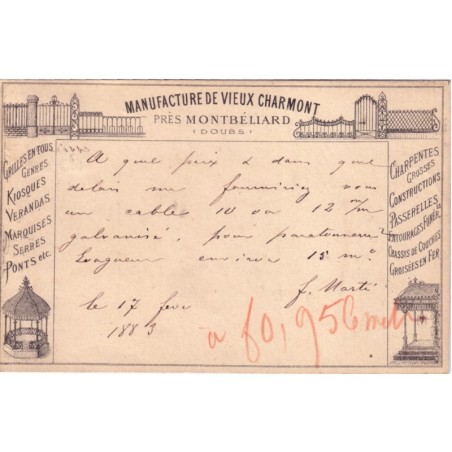 MANUFACTURE DE VIEUX CHARMONT
PRÈS MONTBÉLIARD
(DOUBS)
GRILLES EN TOUS
GENRES
KIOSQUES
VERANDAS
MARQUISES
SERRES
PONTS etc.
A quel prix & dans quel
delais me fourniriez vous
un cable 10 ou 12 m/m
galvanisé, pour paratonnerre?
Longueur environ 15 m.
f. Marti
le 17 fevr
1883
a f0,95 le metre
CHARPENTES
GROSSES
CONSTRUCTIONS
PASSERELLES
ENTOURAGES FUNÉR.
CHASSIS DE COUCHES
CROISÉES EN FER